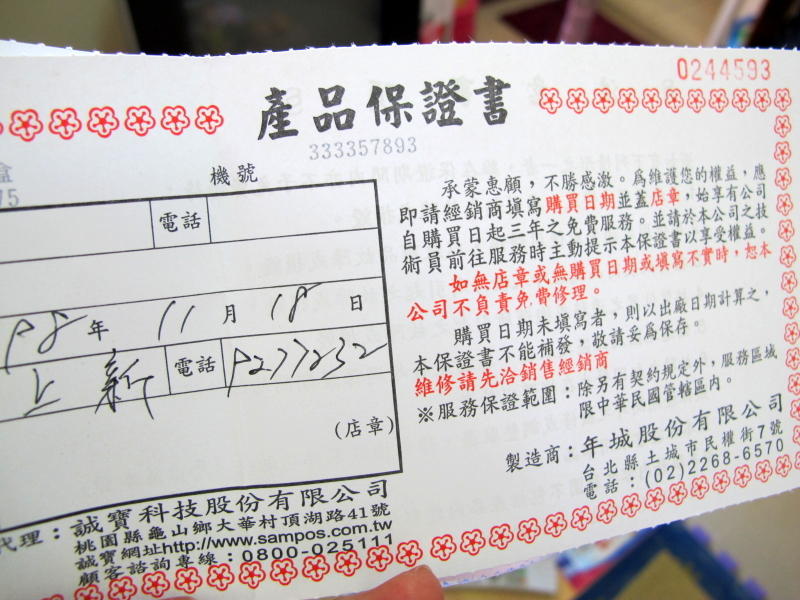 0244593
產品保證書
333357893
盒
機號
75
電話
98年11月18日
上新 電話 9277232
(店章)
代理:誠寶科技股份有限公司
桃園縣龜山鄉大華村頂湖路41號
誠寶網址http://www.sampos.com.tw
顧客諮詢專線:0800-025111
承蒙惠顧,不勝感激。為維護您的權益,應
即請經銷商填寫購買日期並蓋店章,始享有公司
自購買日起三年之免費服務。並請於本公司之技
術員前往服務時主動提示本保證書以享受權益。
如無店章或無購買日期或填寫不實時,恕本
公司不負責免費修理。
購買日期未填寫者,則以出廠日期計算之,
本保證書不能補發,敬請妥為保存。
維修請先洽銷售經銷商
※服務保證範圍:除另有契約規定外,服務區域
限中華民國管轄區內。
製造商:年城股份有限公司
台北縣土城市民權街7號
電話:(02)2268-6570